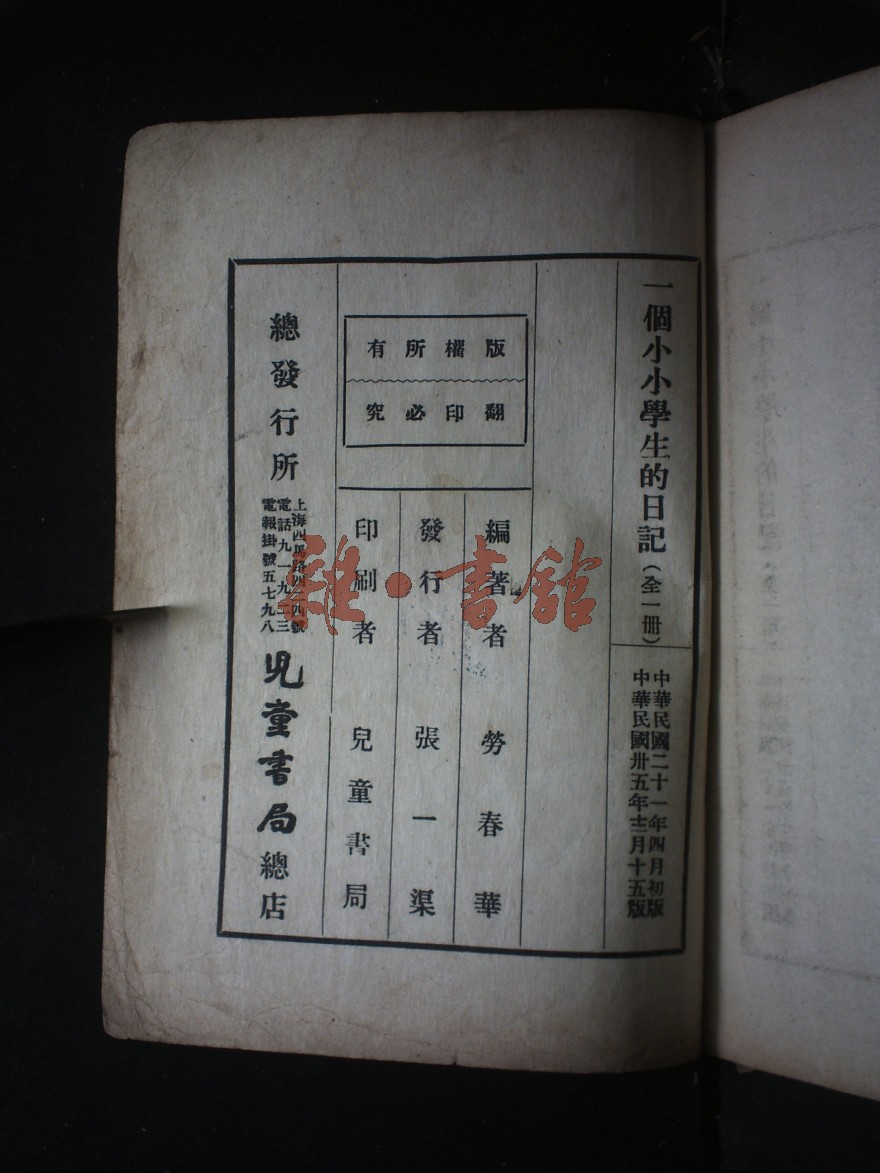 一個小小學生的日記（全一冊）
中華民國二十一年四月初版
中華民國卅五年十二月十五版
版權所有
翻印必究
編著者 勞春華
發行者 張一渠
印刷者 兒童書局
總發行所
上海四馬路四二四號
電話九一九二三
電報掛號五七九八
兒童書局總店
雜·書館